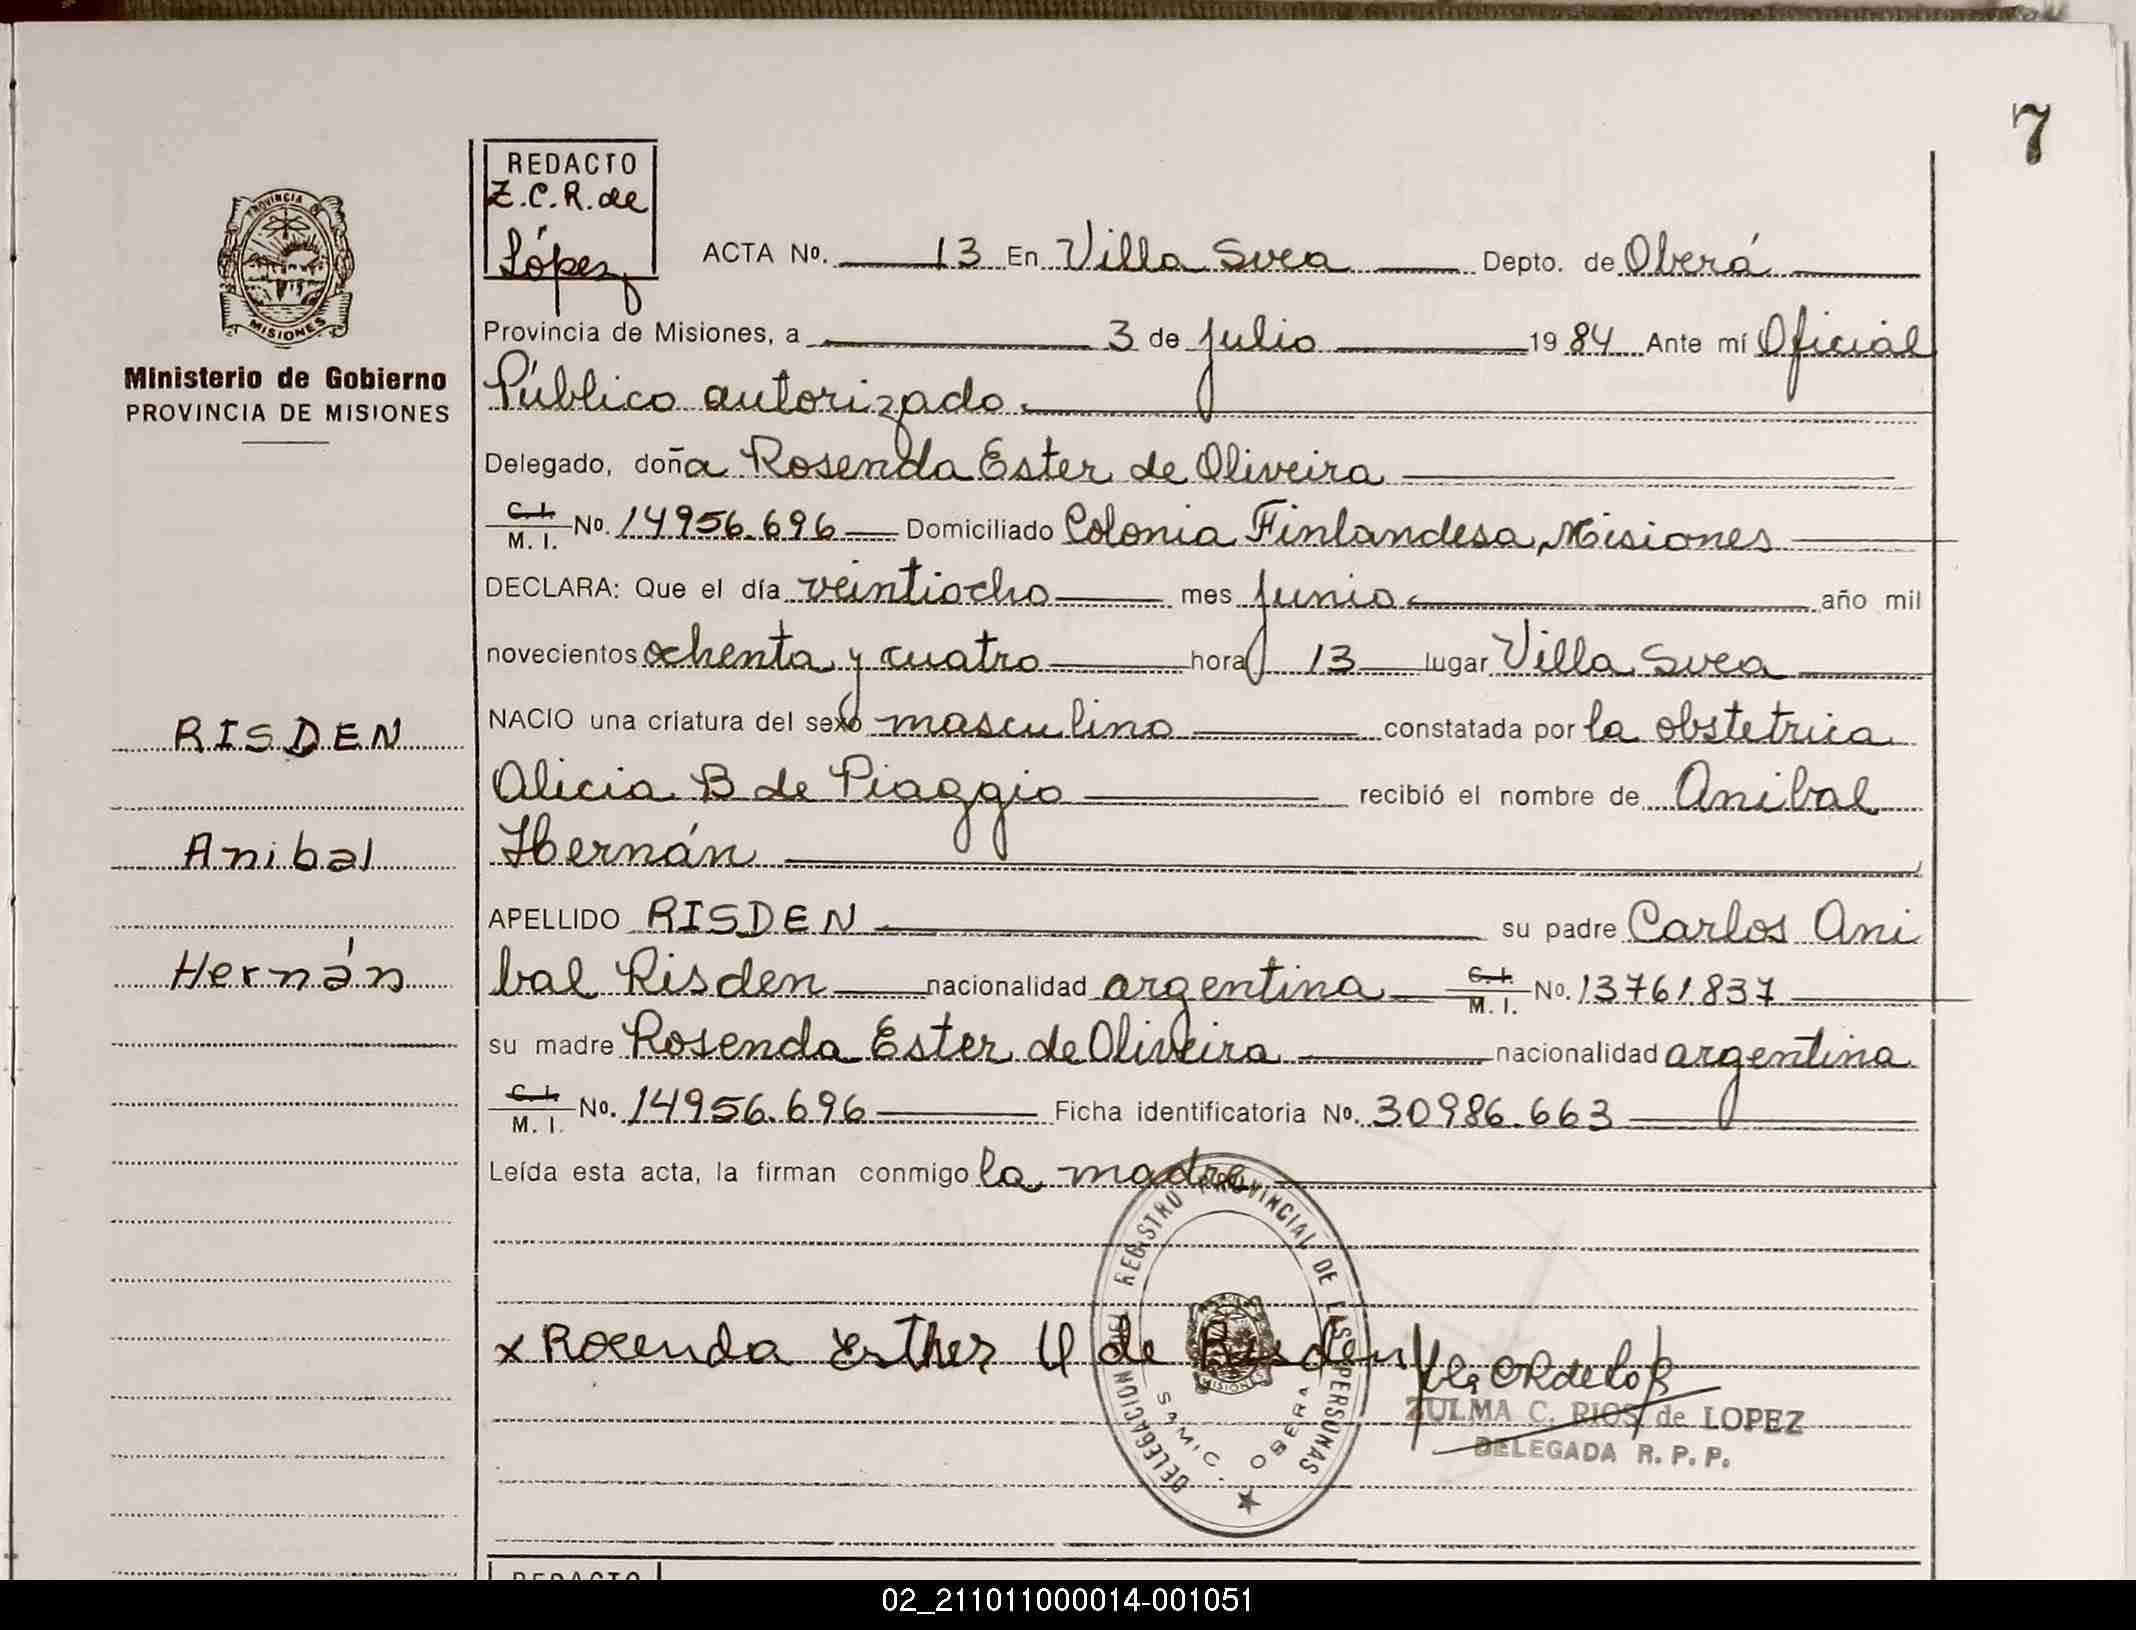 7
REDACTO
Z.C.R. de
López
PROVINCIA DE
MISIONES
Ministerio de Gobierno
PROVINCIA DE MISIONES
ACTA No. 13 En Villa Svea Depto. de Oberá
Provincia de Misiones, a 3 de julio 1984 Ante mí Oficial
Público autorizado.
Delegado, doña Rosenda Ester de Oliveira
C. I.
M. I. No. 14956.696 Domiciliado Colonia Finlandesa, Misiones
DECLARA: Que el día veintiocho mes junio año mil
novecientos ochenta y cuatro hora 13 lugar Villa Svea
NACIO una criatura del sexo masculino constatada por la obstetrica
Alicia B de Piaggio recibió el nombre de Anibal
Hernán
RISDEN
Anibal
Hernán
APELLIDO RISDEN su padre Carlos Ani
bal Risden nacionalidad argentina C. I. M. I. No. 13761837
su madre Rosenda Ester de Oliveira nacionalidad argentina
C. I.
M. I. No. 14956.696 Ficha identificatoria No. 30986.663
Leída esta acta, la firman conmigo la madre
DELEGACION DEL REGISTRO PROVINCIAL DE LAS PERSONAS
MISIONES
SAMIC. OBERA
x Rosenda Esther de Risden
ZULMA C. RIOS de LOPEZ
DELEGADA R. P. P.
REDACTO
02_211011000014-001051